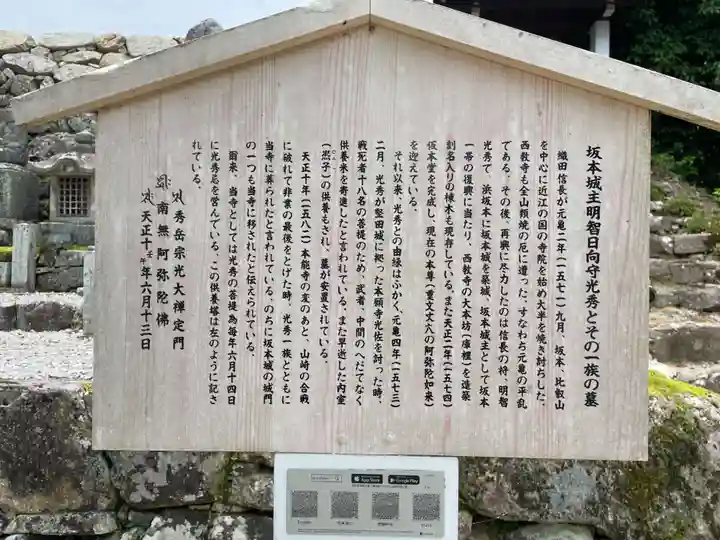 坂本城主明智日向守光秀とその一族の墓
織田信長が元亀二年(一五七一)九月、坂本、比叡山
を中心に近江の国の寺院を始め大半を焼き討ちした。
西教寺も全山類焼の厄に遭った。すなわち元亀の平乱
である。その後、再興に尽力したのは信長の将、明智
光秀で、浜坂本に坂本城を築城、坂本城主として坂本
一帯の復興に当たり、西教寺の大本坊(庫裡)を造築
刻名入りの棟木も現存している。また天正二年(一五七四)
仮本堂を完成し、現在の本尊(重文丈六の阿弥陀如来)
を迎えている。
それ以来、光秀との由縁はふかく、元亀四年(一五七三)
二月、光秀が堅田城に拠った本願寺光佐を討った時、
戦死者十八名の菩提のため、武者、中間のへだてなく
供養米を寄進したと言われている。また早逝した内室
(煕子)の供養もされ、墓が安置されている。
天正十年(一五八二)本能寺の変のあと、山崎の合戦
に破れて非業の最後をとげた時、光秀一族とともに
当寺に葬られたと言われている。のちに坂本城の城門
の一つも当寺に移されたと伝えられている。
爾来、当寺としては光秀の菩提為毎年六月十四日
に光秀忌を営んでいる。この供養塔は左のように記さ
れている。
秀岳宗光大禅定門
南無阿弥陀佛
天正十壬午年六月十三日
App Store
Google Play